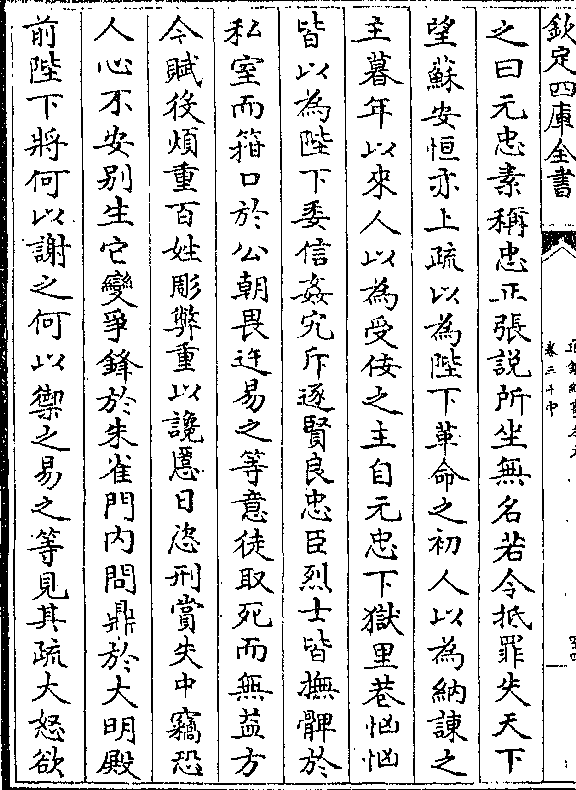 欽定四庫全書
之曰元忠素稱忠正張說所坐無名若令抵罪失天下
望蘇安恒亦上疏以為陛下革命之初人以為納諫之
主暮年以來人以為受佞之主自元忠下獄里巷恟恟
皆以為陛下委信姦宄斥逐賢良忠臣烈士皆撫髀於
私室而箝口於公朝畏迕易之等意徒取死而無益方
今賦役煩重百姓彫弊重以讒慝日恣刑賞失中竊恐
人心不安别生它變爭鋒於朱雀門内問鼎於大明殿
前陛下將何以謝之何以禦之易之等見其疏大怒欲